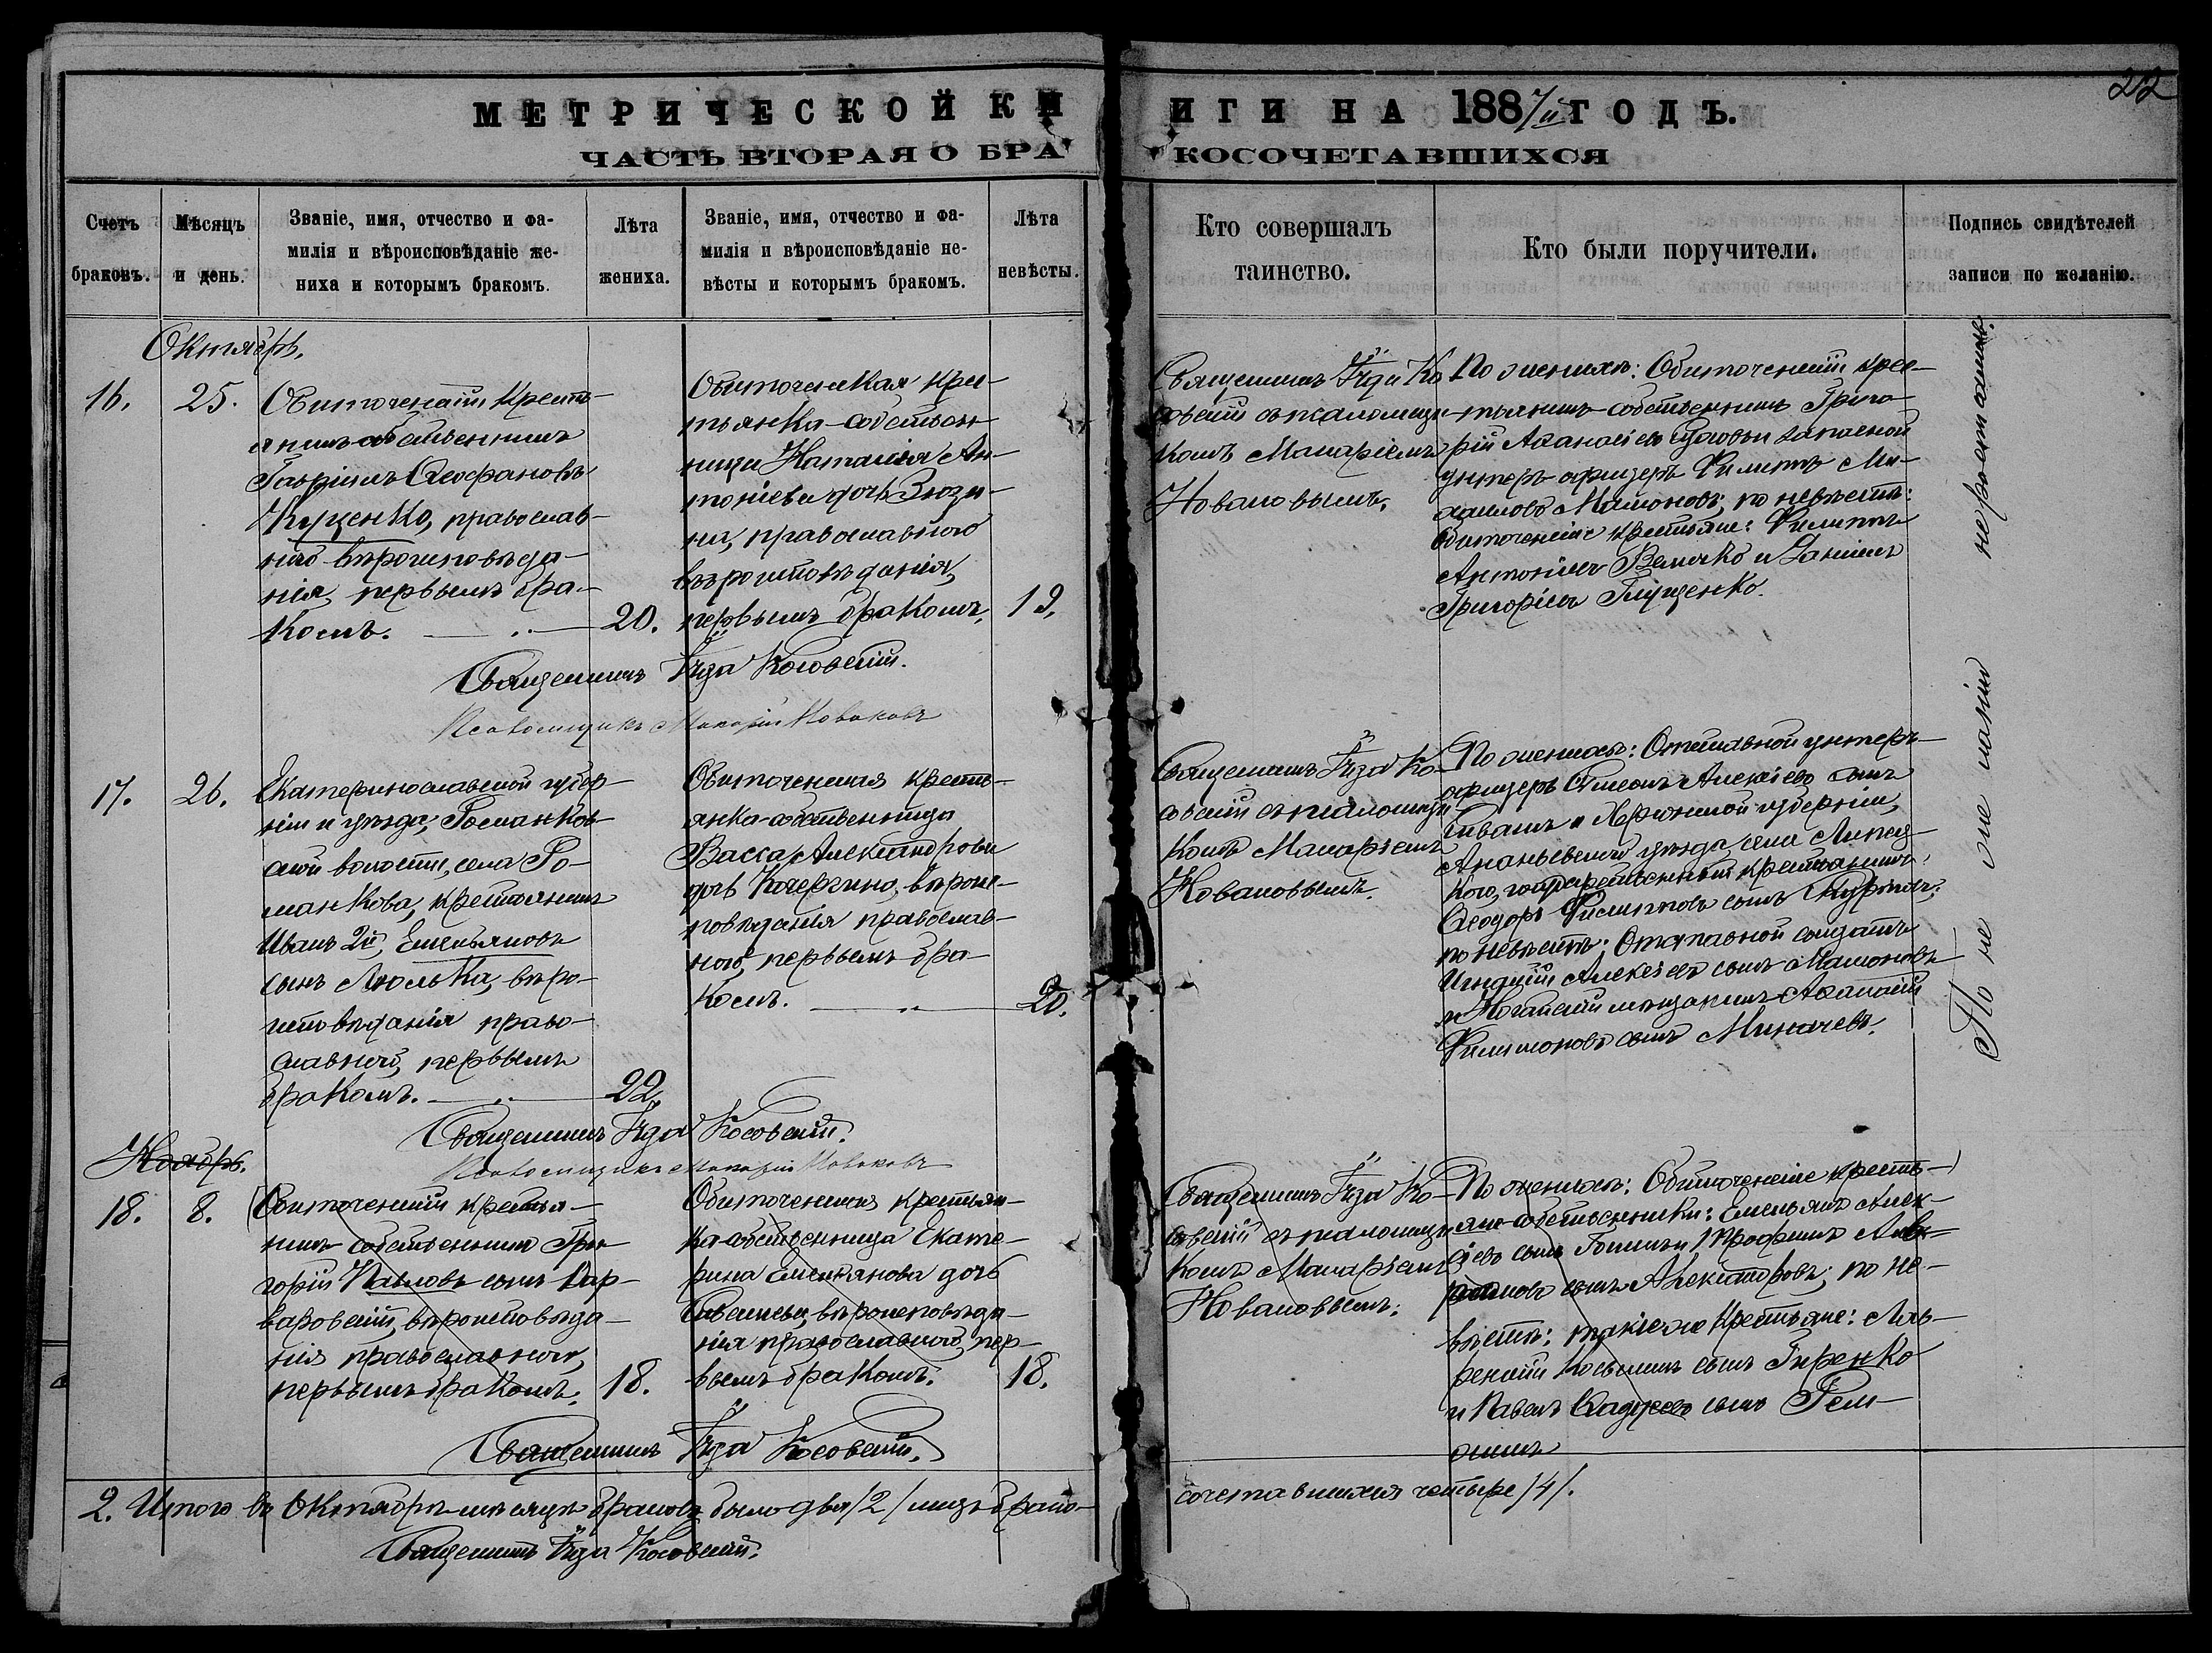 22
МЕТРИЧЕСКОЙ КНИГИ НА 1887/й ГОДЪ.
ЧАСТЬ ВТОРАЯ О БРАКОСОЧЕТАВШИХСЯ
Счетъ браковъ.
Мѣсяцъ и день.
Званіе, имя, отчество и фа-
милія и вѣроисповѣданіе же-
ниха и которымъ бракомъ.
Лѣта
жениха.
Званіе, имя, отчество и фа-
милія и вѣроисповѣданіе не-
вѣсты и которымъ бракомъ.
Лѣта
невѣсты.
Кто совершалъ
таинство.
Кто были поручители.
Подпись свидѣтелей
записи по желанію.
Октябрь.
16.
25.
Обиточенскій кресть-
янинъ собственникъ
Гавріилъ Ѳеофановъ
Куценко, православ-
наго вѣроисповѣда-
нія, первымъ бра-
комъ.
20.
Обиточенская крес-
тьянка-собствен
ница Наталія Ан-
тоніева дочь Зюзи-
на, православнаго
вѣроисповѣданія,
первымъ бракомъ.
19.
Священникъ Ко-
совскій съ псаломщи-
комъ Макаріемъ
Новаковымъ.
По женихѣ: Обиточенскій крес-
тьянинъ-собственникъ Григо-
рій Аѳанасіевъ запасной
унтеръ-офицеръ Филиппъ Ми-
хаиловъ Мамоновъ; по невѣстѣ:
Обиточенскіе крестьяне: Филиппъ
Антоніевъ Величко и Даніилъ
Григоріевъ Глущенко.
Священникъ Косовскій.
Псаломщикъ Макарій Новаковъ
17.
26.
Екатеринославской губер-
ніи и уѣзда, Романков-
ской волости, села Ро-
манкова, крестьянинъ
Иванъ 2й, Емельяновъ
сынъ Люлька, вѣро-
исповѣданія право-
славнаго, первымъ
бракомъ.
22.
Обиточенская кресть-
янка-собственница
Васса Александрова
дочь Кочергина, вѣроис-
повѣданія православ-
наго, первымъ бра-
комъ.
20.
Священникъ Ко-
совскій съ псаломщи
комъ Макаріемъ
Новаковымъ.
По женихѣ: Отставной унтеръ-
офицеръ Симеонъ Алексіевъ сынъ
и Херсонской губерніи,
Ананьевскаго уѣзда, села Липец-
кого, крестьянинъ
Ѳеодоръ Филипповъ сынъ
по невѣстѣ: Отставной солдатъ
Алексіевъ сынъ Мамоновъ
и Ногайскій мѣщанинъ Аѳанасій
Филимоновъ сынъ Миначевъ.
Священникъ Косовскій.
Псаломщикъ Макарій Новаковъ
По не ихъ не росписались.
Ноябрь.
18.
8.
Обиточенскій крестья-
нинъ собственникъ Гри-
горій Павловъ сынъ Вар-
варовскій, вѣроисповѣда-
нія православнаго,
первымъ бракомъ.
18.
Обиточенская крестьян-
ка-собственница Екате-
рина Емельянова дочь
вѣроисповѣда-
нія православнаго, пер-
вымъ бракомъ.
18.
Священникъ Ко-
совскій съ псаломщи
комъ Макаріемъ
Новаковымъ.
По женихѣ: Обиточенскіе кресть-
яне-собственники: Емельянъ Алек-
сіевъ сынъ и Трофимъ
сынъ Александровъ; по не-
вѣстѣ: такіе же крестьяне: Лав-
рентій Косьминъ сынъ Гиренко
и Павелъ сынъ
Священникъ Косовскій.
2. Итого въ Октябрѣ мѣсяцѣ браковъ было два /2/ лицъ брако-
сочетавшихся четыре /4/.
Священникъ Косовскій.